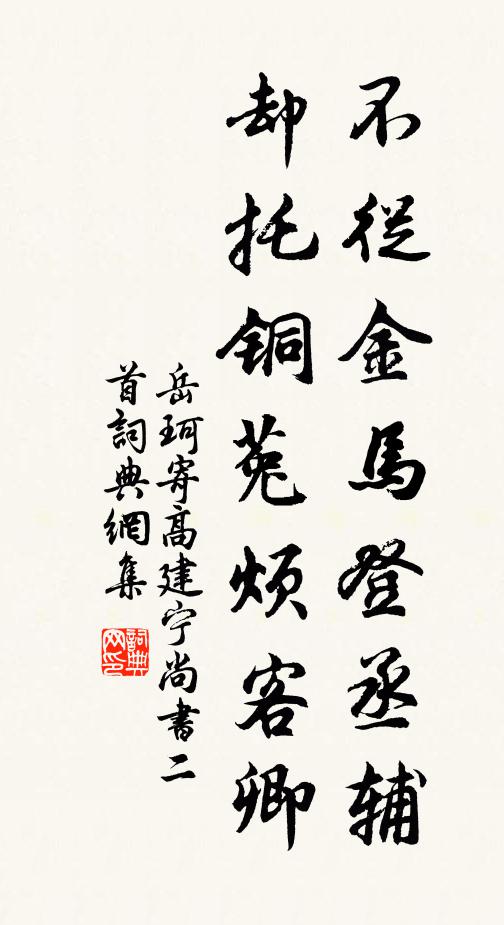 不從金馬登丞辅
却托铜菟烦客卿
岳珂寄高建宁尚書二
首詞典網集
詞典网印